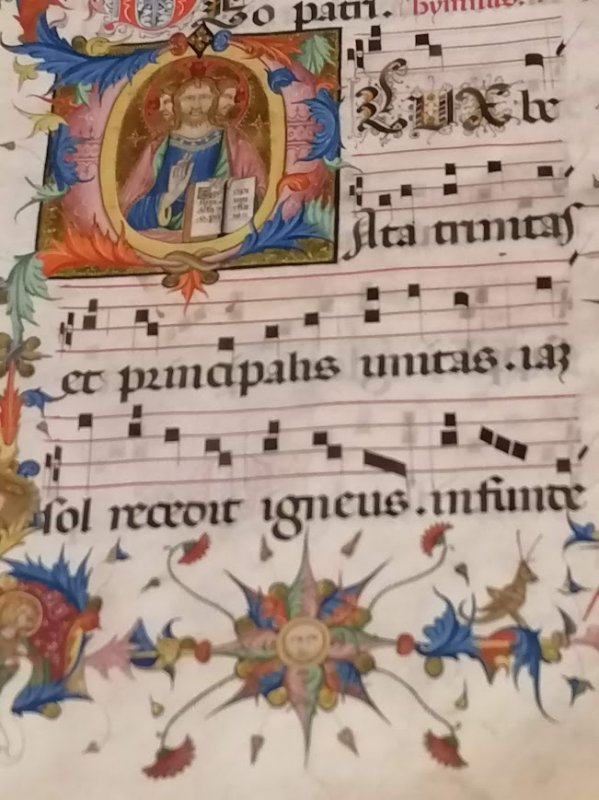 Do patri. hymnus.
O LUX be
Ata trinitas
et principalis unitas. iaʒ
sol recedit igneus. infunde